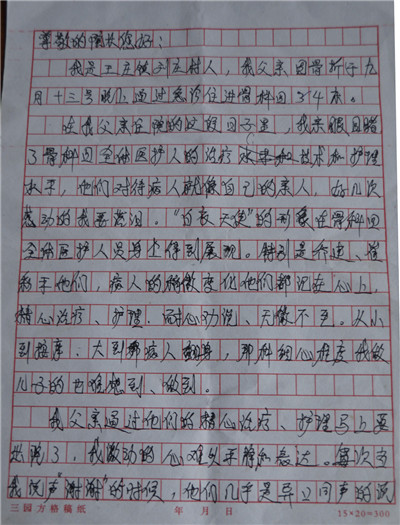 尊敬的院长您好：
我是王庄镇刘庄村人，我父亲因骨折于九
月十三号晚上通过急诊住进骨科四 314床。
在我父亲住院的这段日子里，我亲眼目睹
了骨科四全体医护人的治疗 技术和护理
水平，他们对待病人就像自己的亲人，好几次
感动的我要流泪。“白衣天使”的形象在骨科四
全体医护人员身上得到展现。特别是乔迪、
他们，病人的稍微变化他们都记在心上，
精心治疗、护理、耐心劝说、无微不至。从小
到 ，大到帮病人翻身，那种细心程度我做
儿子的也难想到、做到。
我父亲通过他们的精心治疗、护理马上要
出院了，我激动的心难以平静和表达。每次当
我说声“谢谢”的时候，他们几乎是异口同声的说
三园方格稿纸 年 月 日 15×20=300